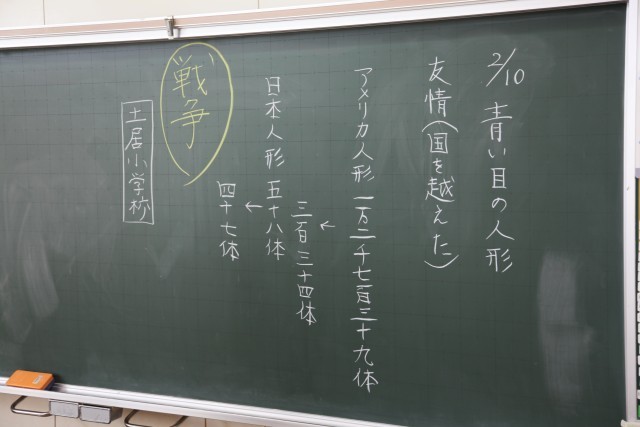 2/10 青い目の人形
友情(国を越えた)
アメリカ人形 一万二千七百三十九体
←
三百三十四体
日本人形 五十八体
←
四十七体
戦争
土居小学校